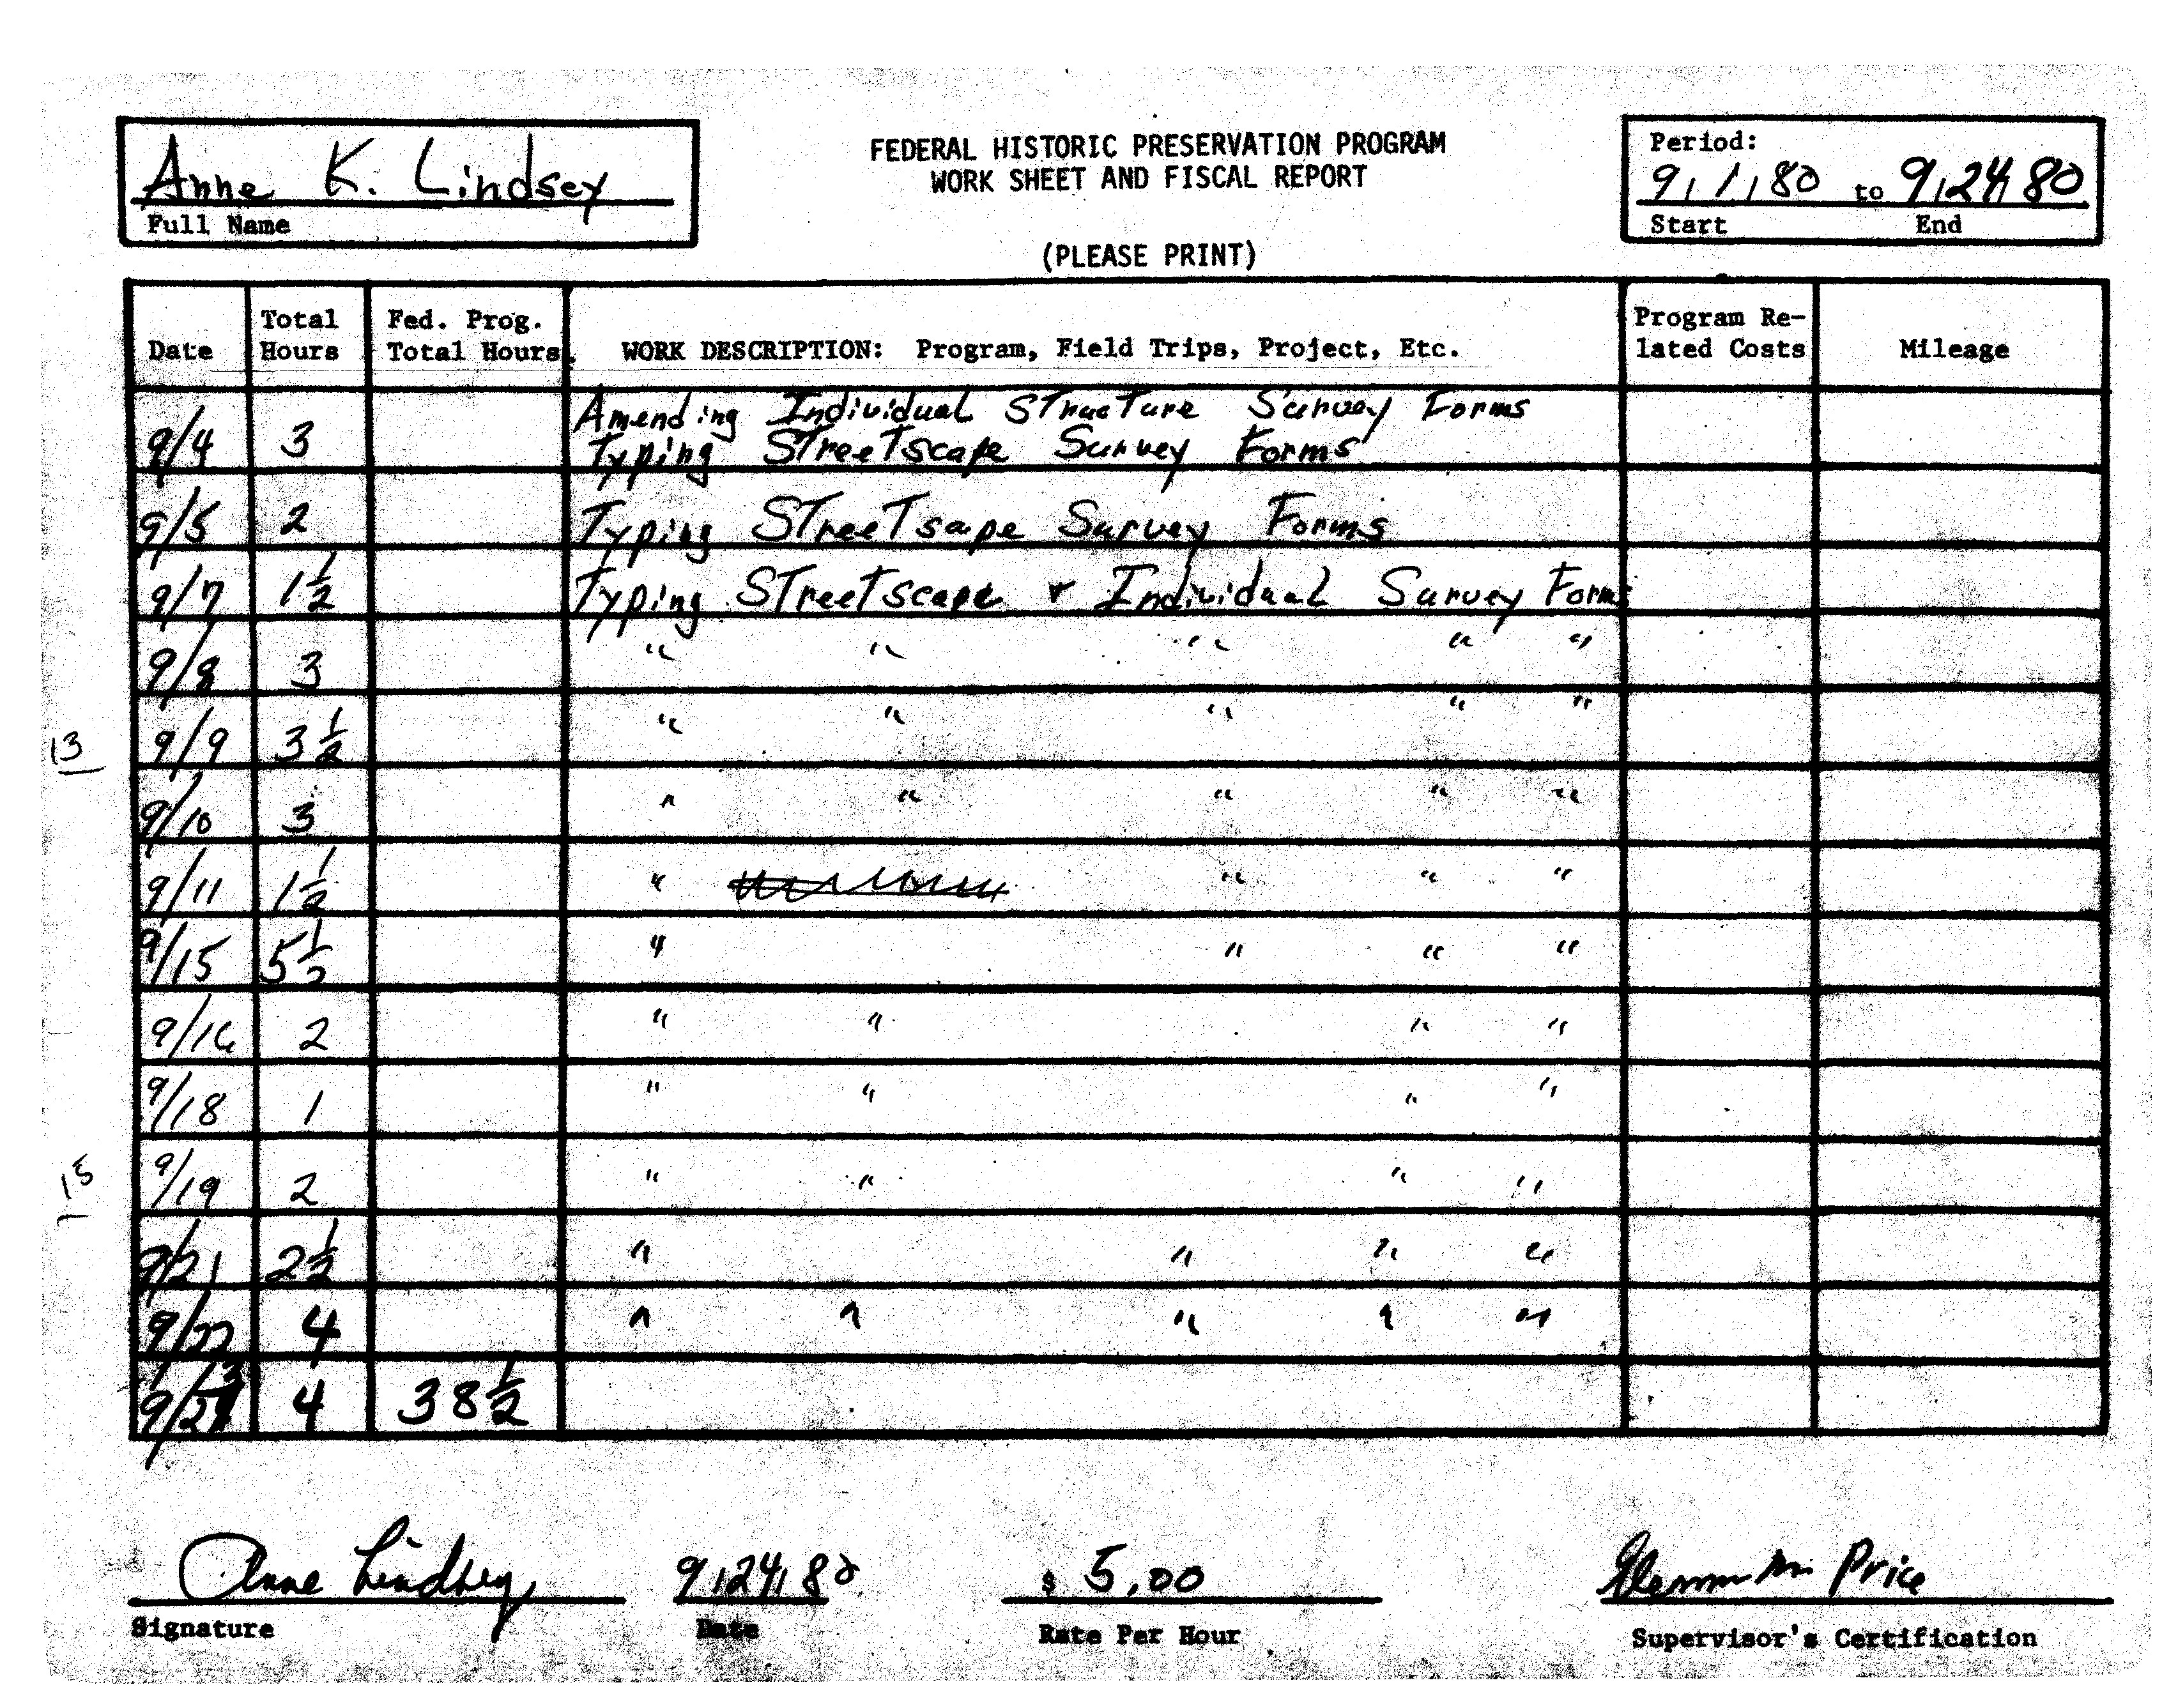 Anne K. Lindsey
Full Name
FEDERAL HISTORIC PRESERVATION PROGRAM
WORK SHEET AND FISCAL REPORT
(PLEASE PRINT)
Period:
9/1/80 to 9/24/80
Start End
Date Total Hours Fed. Prog. Total Hours. WORK DESCRIPTION: Program, Field Trips, Project, Etc. Program Re-lated Costs Mileage
Amending Individual Structure Survey Forms
9/4 3 Typing Streetscape Survey Forms
9/5 2 Typing Streetsape Survey Forms
9/7 1 1/2 Typing Streetscape & Individual Survey Forms
9/8 3 " " " " "
13 9/9 3 1/2 " " " " "
9/10 3 " " " " "
9/11 1 1/2 " " " "
9/15 5 1/2 " " " "
9/16 2 " " " "
9/18 1 " " " "
15 9/19 2 " " " "
9/21 2 1/2 " " " "
9/22 4 " " " " "
9/23 4 38 1/2
Anne Lindsey 9/24/80 $ 5.00 Price
Signature Date Rate Per Hour Supervisor's Certification